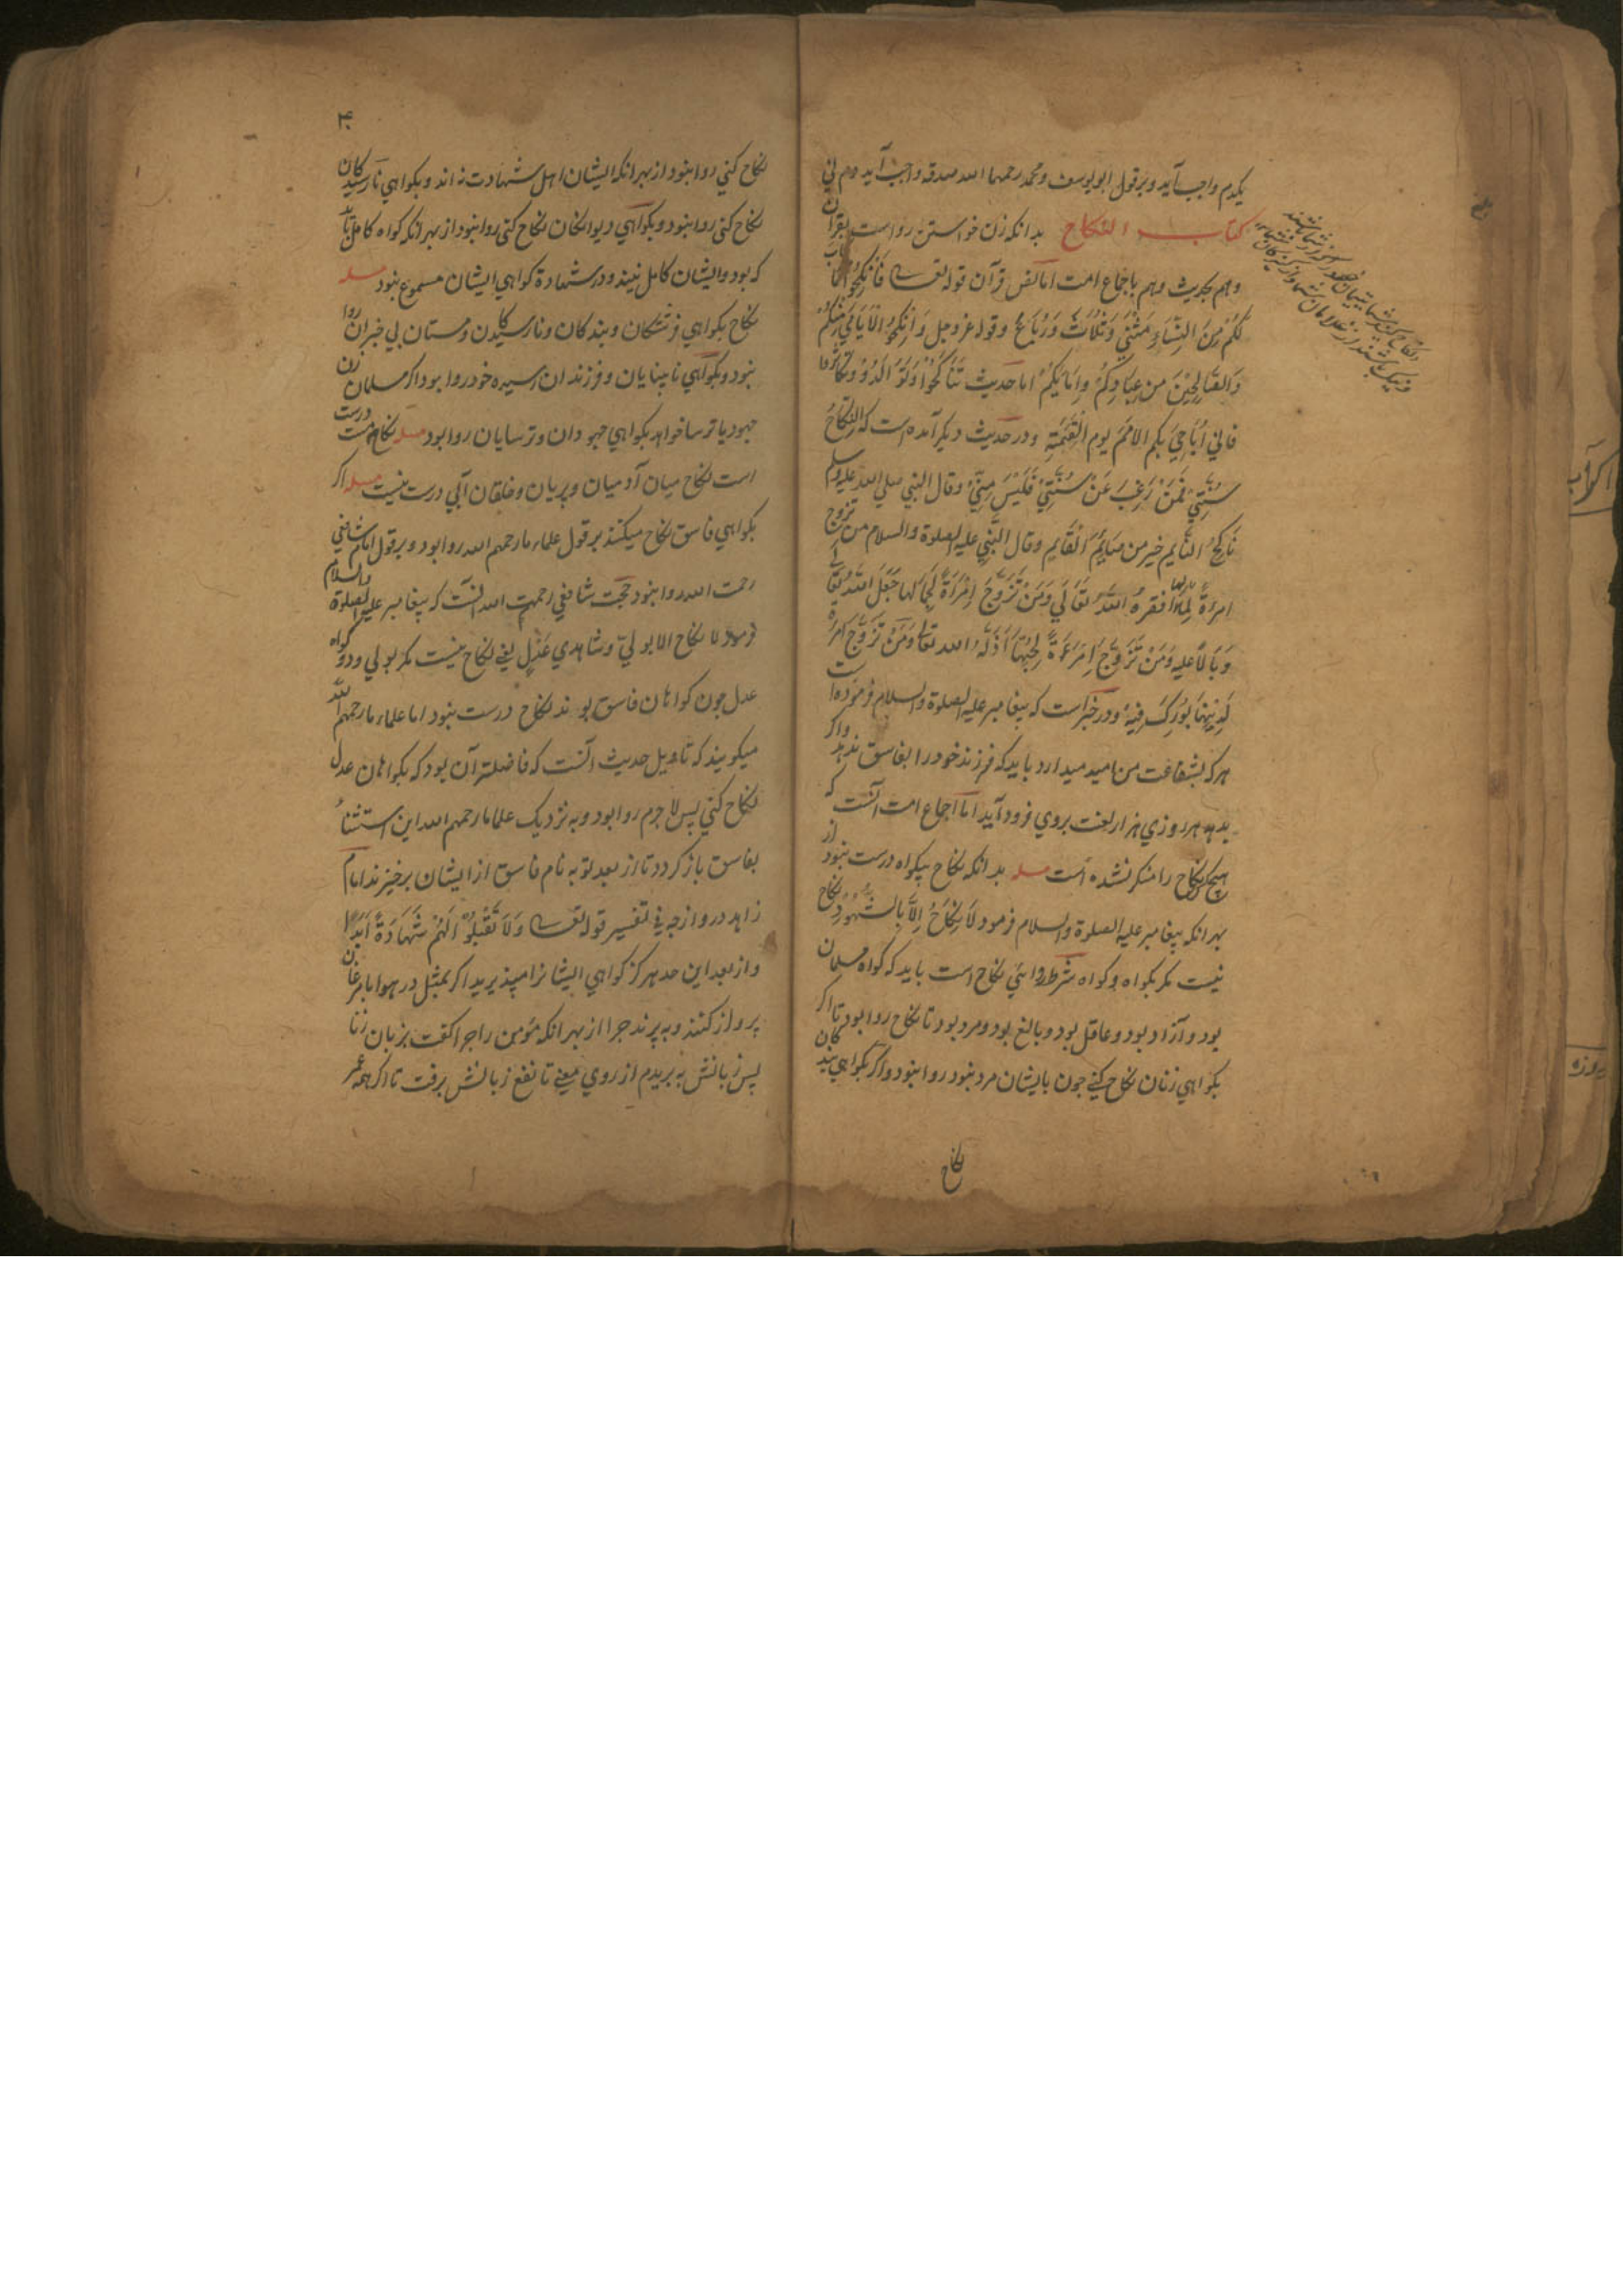 یکدم واجب آید و بر قول ابو یوسف و محمد رحمهما الله صدقه واجب آید دم نی
کتاب النکاح بدانکه زن خواستن رواست بقرآن
و هم بحدیث و هم باجماع امت اما نص قرآن قوله تعالی فَانْكِحُوا مَا طَابَ
لَكُمْ مِنَ النِّسَاءِ مَثْنَى وَثُلَاثَ وَرُبَاعَ و قوله عز و جل وَاَنْكِحُوا الْاَيَامَى مِنْكُمْ
وَالصَّالِحِيْنَ مِنْ عِبَادِكُمْ وَاِمَائِكُمْ اما حدیث تَنَاكَحُوْا تَوَالَدُوْا وتَكَاثَرُوا
فاني اُبَاهِيْ بكم الاُمَمَ يوم القِيٰمَةِ و در حدیث دیکر آمده است که النِّكَاحُ
سُنَّتِيْ فَمَنْ رَغِبَ عَنْ سُنَّتِيْ فَلَيْسَ مِنِّيْ وقال النبي صلي الله عليه وسلم
نَاكِحُ النَّايم خير من صَايِمُ القَايم وقال النَّبِي عليه الصلوة والسلام من تزوج
امرءةً لِمَالِهَا اَفقرهُ اللّٰهُ تعَالَي وَمَنْ تَزَوَّجَ اِمْرَاَةً لِجَمَالِهَا جَعَلَ اللّٰهُ تعالی
وَبَالًا عليه وَمَنْ تَزَوَّجَ اِمْرَءَةً اَذَلَّهُ الله تعالی وَمَنْ تَزَوَّجَ امرأة
لِدِيْنِهَا بُوْرِكَ فِيْهِ و در خبر است که پیغامبر علیه الصلوة والسلام فرموده است
هر که بشفاعت من امید میدارد باید که فرزند خود را بفاسق ندهد و اکر
بدهد هر روزي هزار لعنت بروي فرود آید اما اجماع امت آنست که
هیچکس نکاح را منکر نشده است مسله بدانکه نکاح بیکواه درست نبود از
بهر انکه پیغامبر علیه الصلوة والسلام فرمود لَا نِكَاحَ اِلَّا بِالشُّهُوْدِ نکاح
نیست مکر بکواه و کواه شرط روائي نکاح است باید که کواه مسلمان
بود و آزاد بود و عاقل بود و بالغ بود و مرد بود تا نکاح روا بود تا اکر
بکواهي زنان نکاح کني چون بایشان مرد نبود روا نبود و اکر بکواهي بندکان
نکاح
نکاح کني روا نبود از بهر انکه ایشان اهل شهادت نه اند و بکواهي نارسیدکان
نکاح کني روا نبود و بکواهي دیوانکان نکاح کني روا نبود از بهر انکه کواه کامل باید
که بود و ایشان کامل نیند و در شهادة کواهي ایشان مسموع نبود مسله
نکاح بکواهي فرشتکان و بندکان و نارسیدکان و مستان بي خبران روا
نبود و بکواهي نابینایان و فرزندان سیره خود روا بود اکر مسلمان زن
جهود یا ترسا خواهد بکواهي جهودان و ترسایان روا بود مسله نکاح درست
است نکاح میان آدمیان و پریان و خلقان آبي درست نیست مسله اکر
بکواهي فاسق نکاح میکنند بر قول علماء ما رحمهم الله روا بود و بر قول امام شافعي
رحمت الله روا نبود حجت شافعي رحمهم الله آنست که پیغامبر علیه الصلوة والسلام
فرمود لا نکاح الا بولي و شاهدي عدل یعني نکاح نیست مکر بولي و دو کواه
عدل چون کواهان فاسق بوند نکاح درست نبود اما علماء ما رحمهم الله
میکویند که تاویل حدیث آنست که فاضلتر آن بود که بکواهان عدل
نکاح کني پس لا جرم روا بود و به نزدیک علما ما رحمهم الله این استثناء
بفاسق باز کردد تا از بعد توبه نام فاسق از ایشان برخیزند امام
زاهد در واژجه في تفسیر قوله تعالی وَلَا تَقْبَلُوْا لَهُمْ شَهَادَةً اَبَدًا
و از بعد این حد هرکز کواهي ایشانرا مپذیرید اکر بمثل در هوا با مرغان
پرواز کنند و بپرند چرا از بهر انکه مؤمن را چرا کفت بزبان زنا
پس زبانش ببریدم از روي معني تا نفع زبانش برفت تا اکر همه عمر